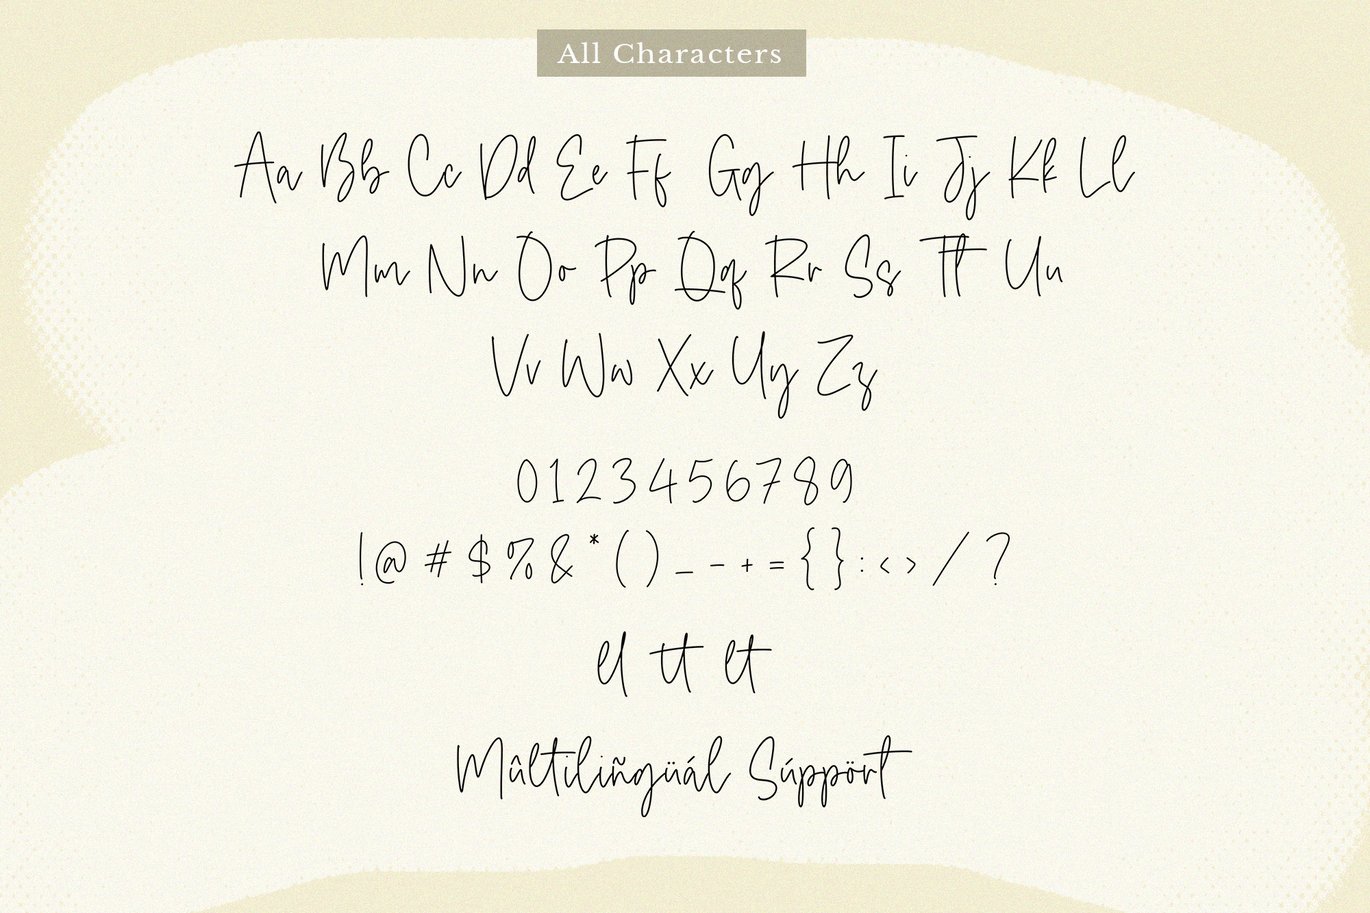 All Characters
Aa Bb Cc Dd Ee Ff Gg Hh Ii Jj Kk Ll
Mm Nn Oo Pp Qq Rr Ss Tt Uu
Vv Ww Xx Yy Zz
0123456789
!@#$%&*()_-+={}:<>/?
el tt et
Mûltiliñgüál Súppört